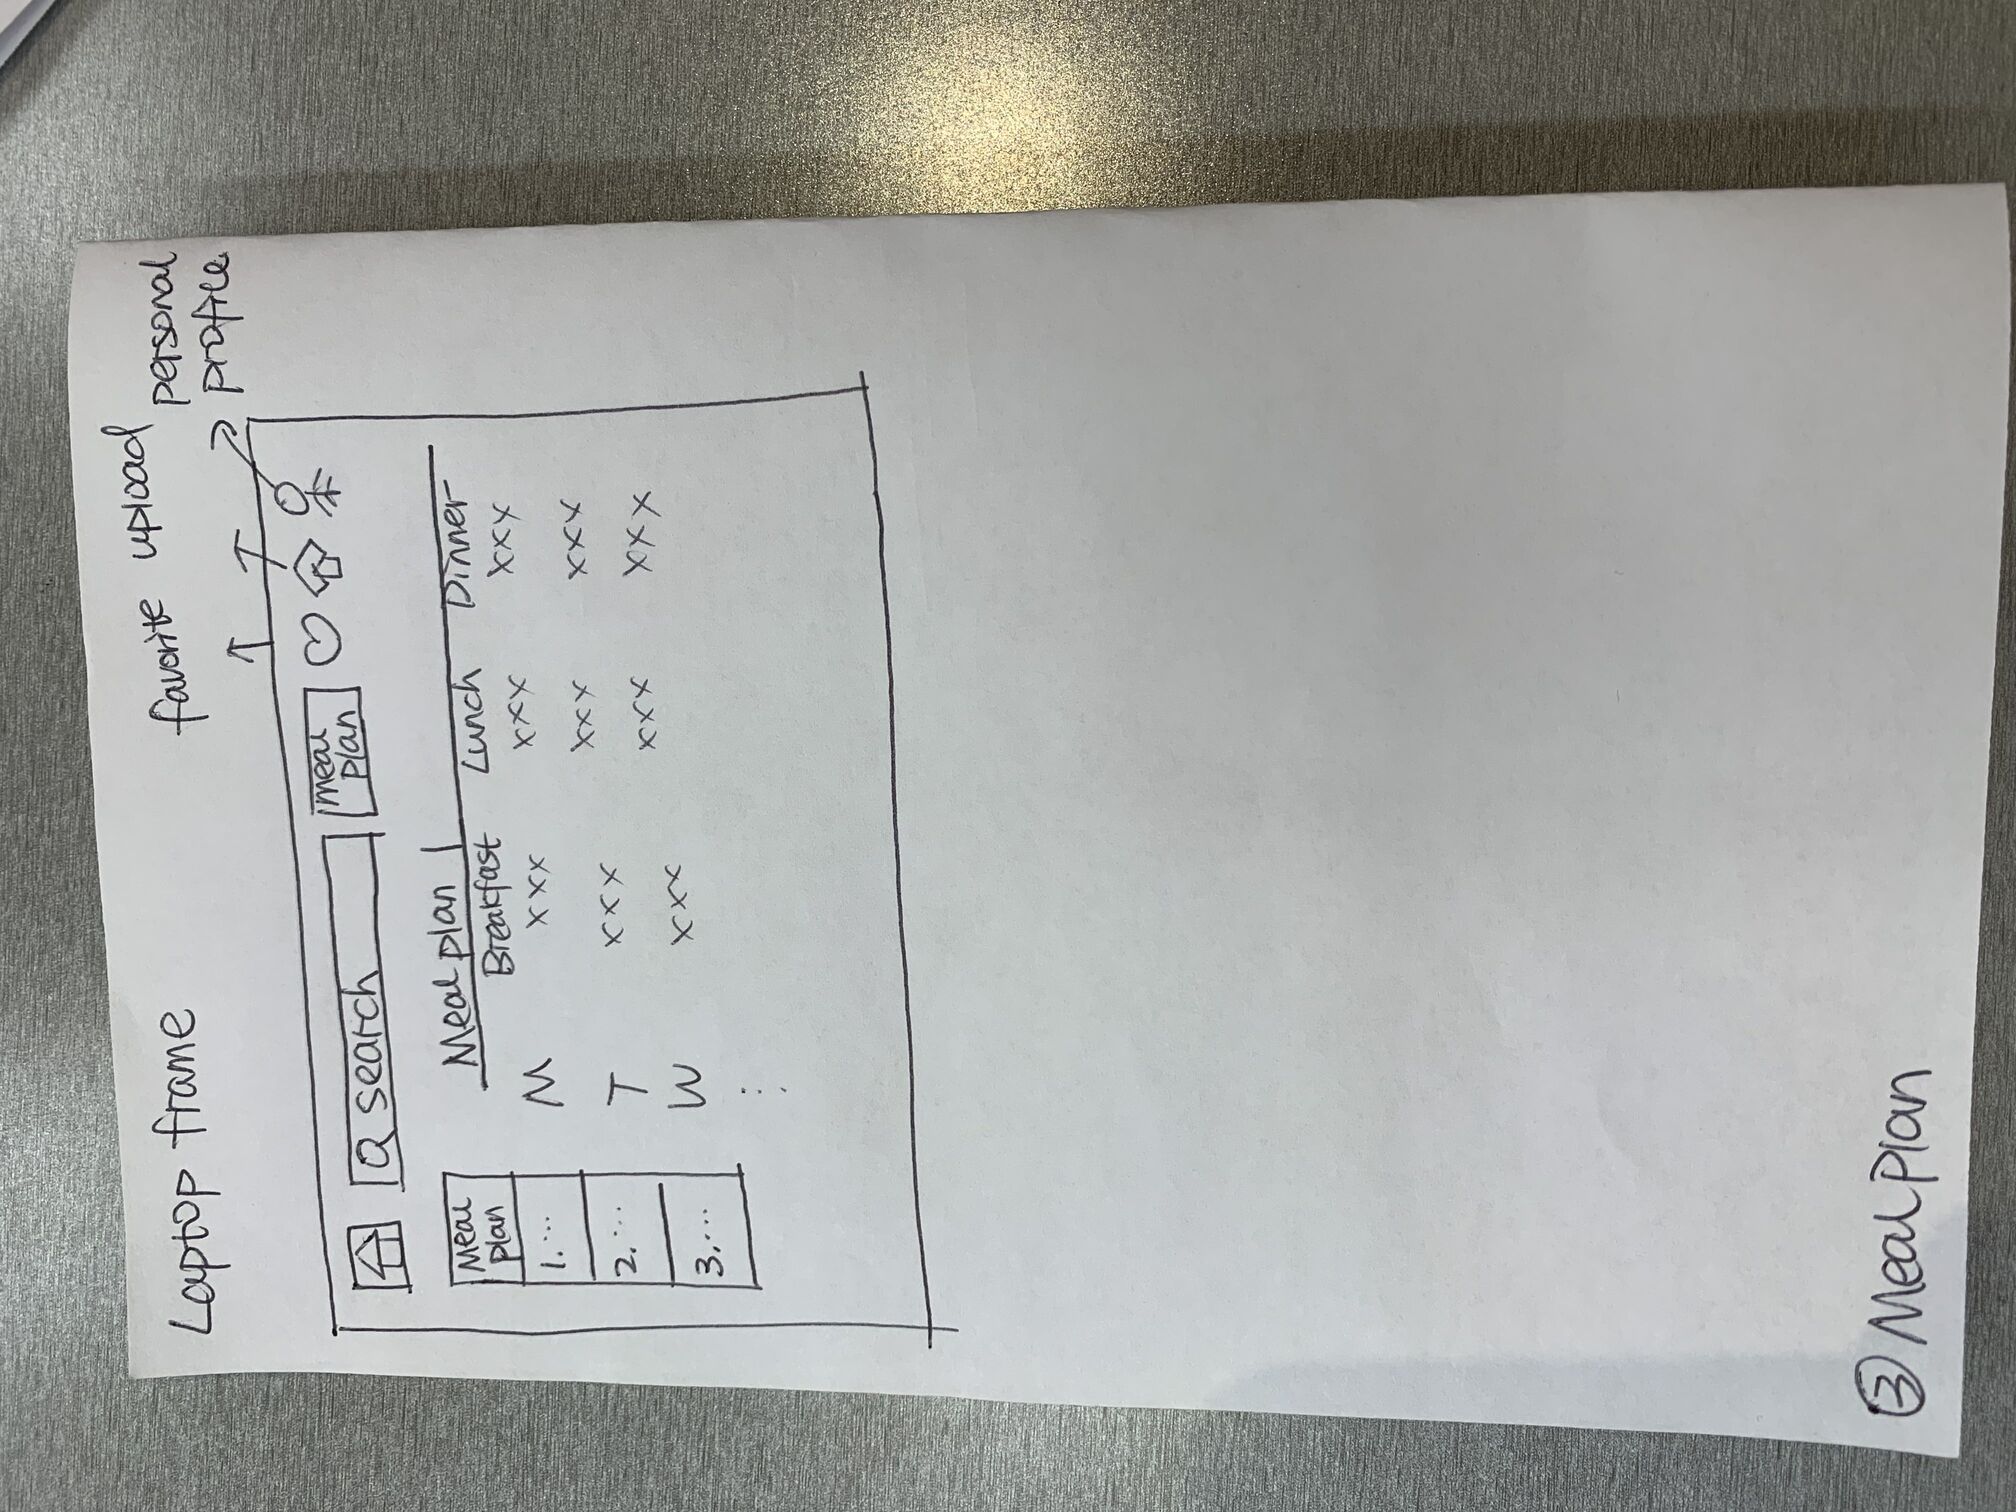 Laptop frame
favorite upload personal
profile
search
meal
plan
Meal
plan
1. ...
2. ...
3. ...
Meal plan 1
Breakfast Lunch Dinner
M xxx xxx xxx
T xxx xxx xxx
W xxx xxx xxx
⋮
③ Meal Plan